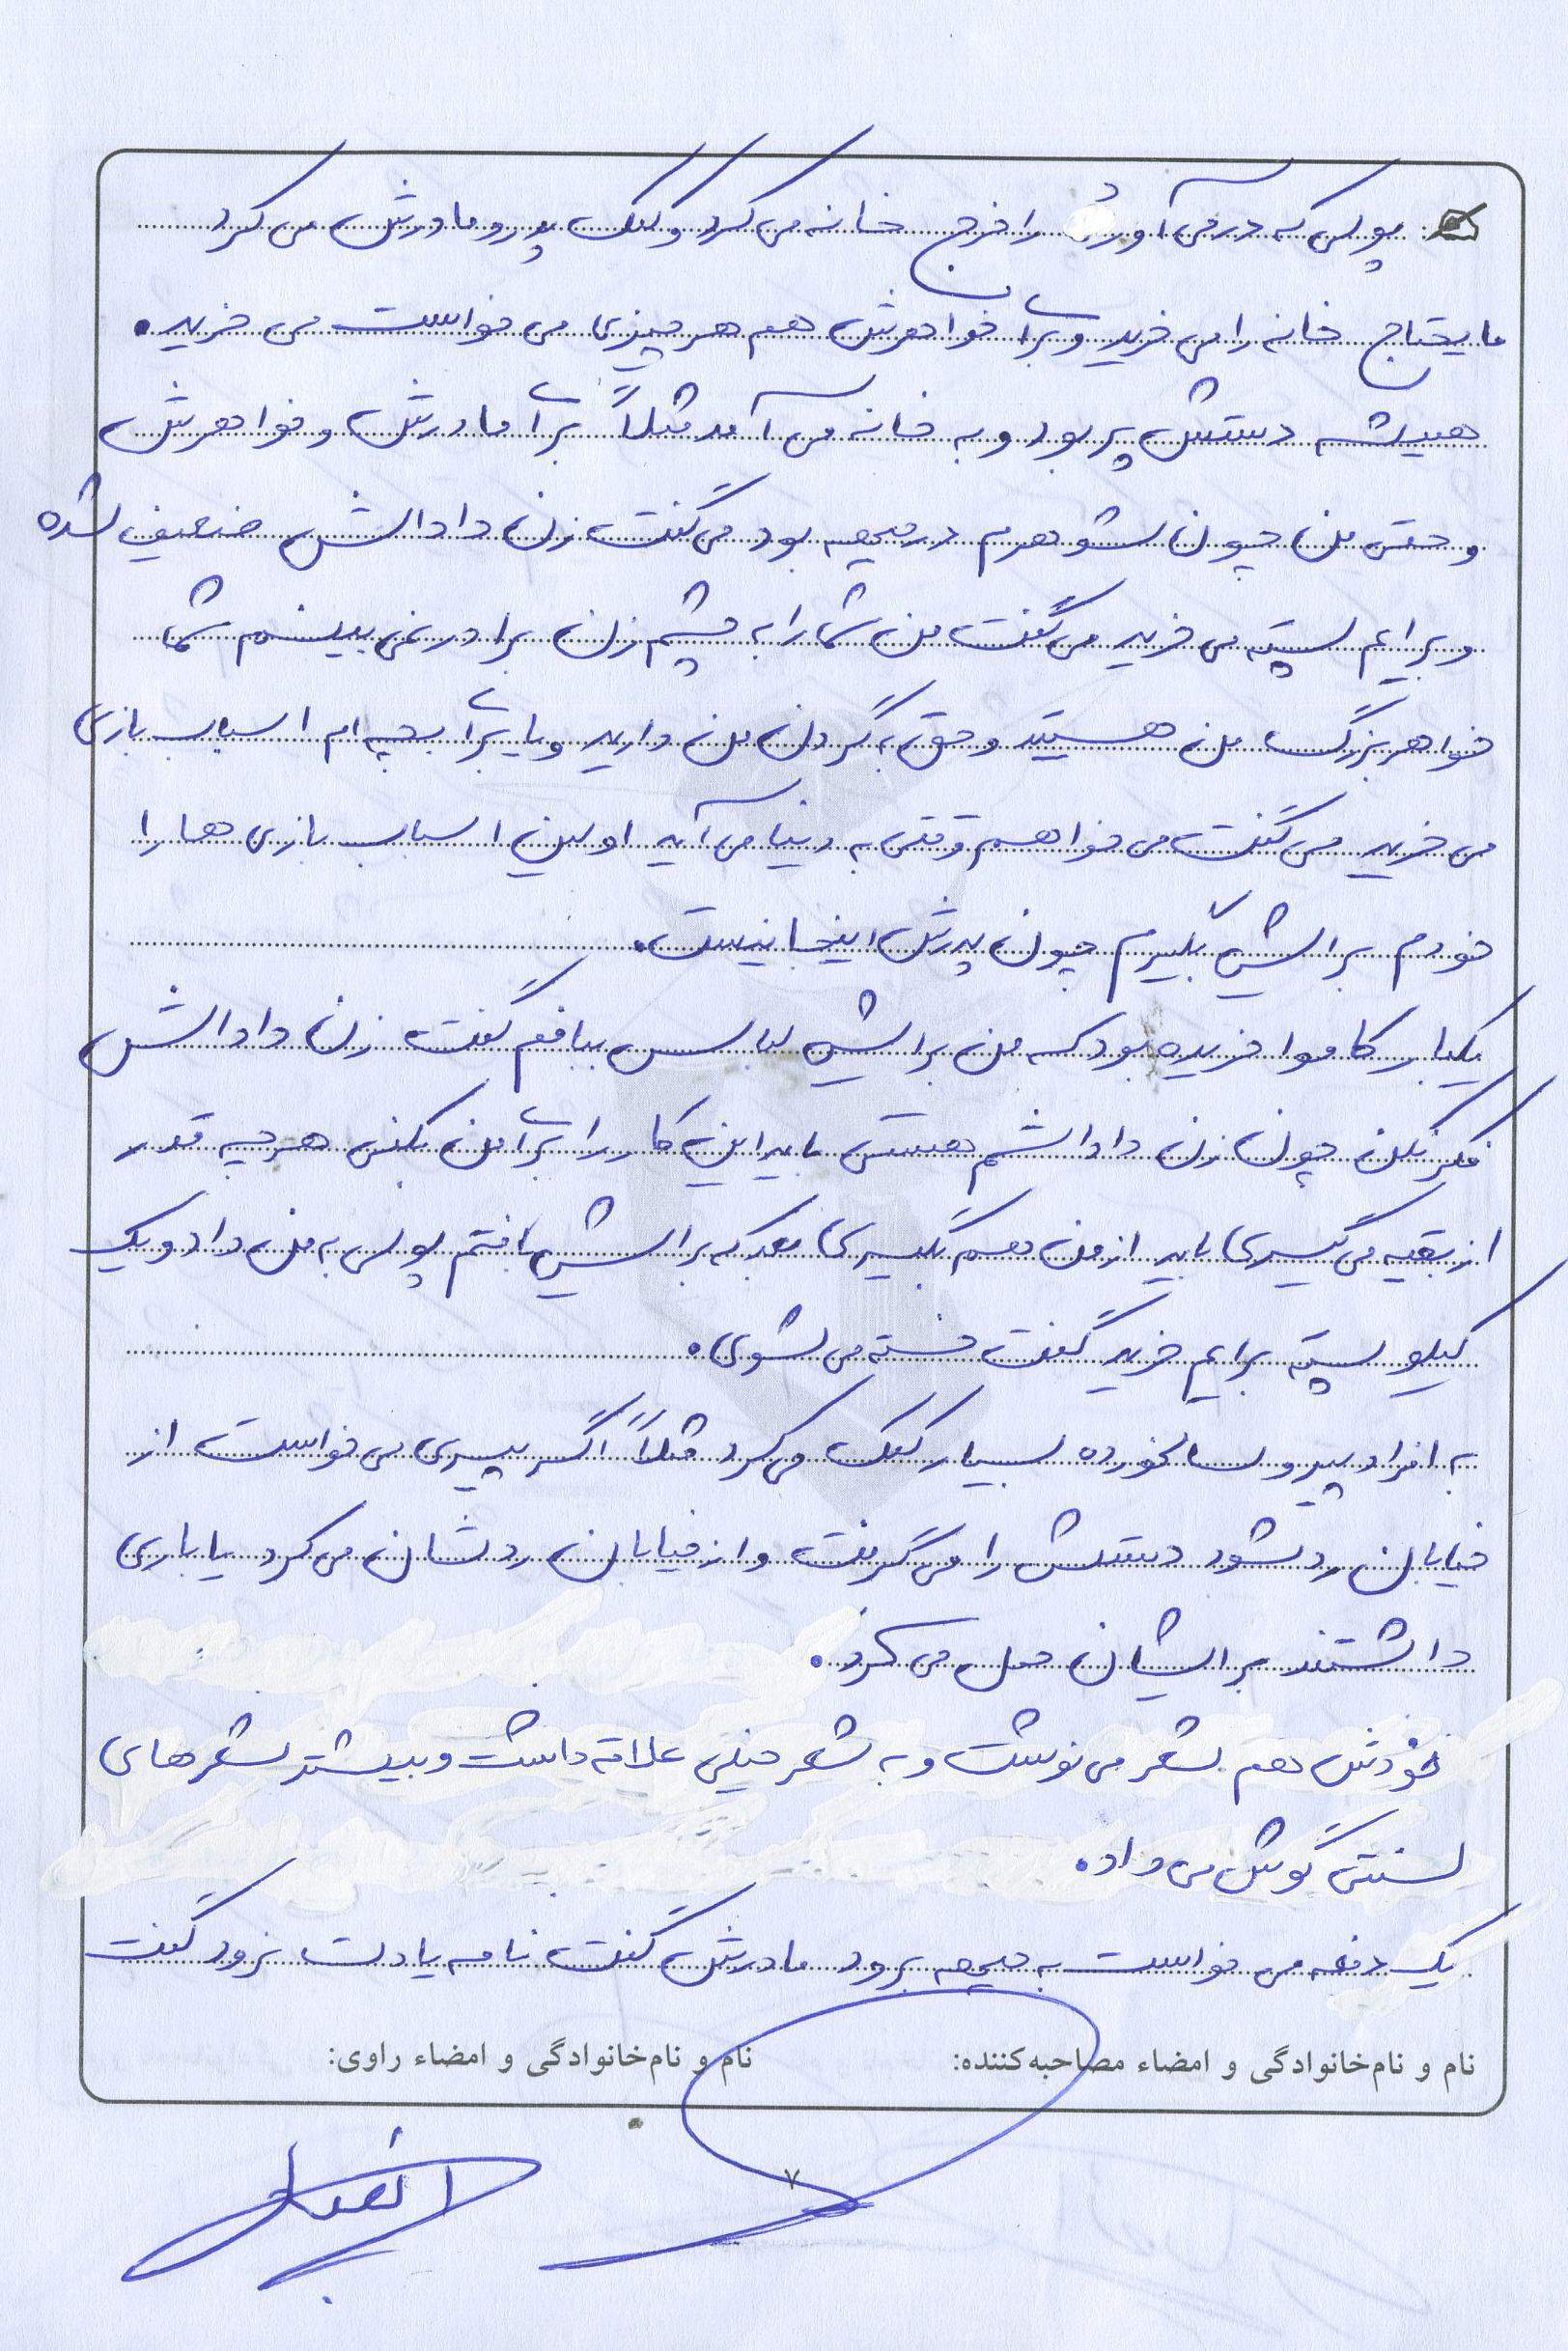 پولی که درمی آورد را خرج خانه می کرد و کمک پدر و مادرش می کرد
مایحتاج خانه را می خرید و برای خواهرش هم هر چیزی می خواست می خرید.
همیشه دستش پر بود و به خانه می آمد مثلاً برای مادرش و خواهرش
و حتی من چون شوهرم در جبهه بود می گفت زن داداش ضعیف شده
و برایم پسته می خرید می گفت من شما را به چشم زن برادر نمی بینم شما
خواهر بزرگ من هستید و حق به گردن من دارید و یا برای بچه ام اسباب بازی
می خرید می گفت می خواهم وقتی به دنیا می آید اولین اسباب بازی ها را
خودم برایش بگیرم چون پدرش اینجا نیست.
یکبار کاموا خریده بود که من برایش لباس ببافم گفت زن داداش
فکر نکن چون زن داداشم هستی باید این کار را برای من بکنی هر چه قدر
از بقیه می گیری باید از من هم بگیری بعد که برایش بافتم پولی به من داد و یک
کیلو پسته برایم خرید گفت خسته می شوی.
به افراد پیر و سالخورده بسیار کمک می کرد مثلاً اگر پیری می خواست از
خیابان رد شود دستش را می گرفت و از خیابان ردشان می کرد یا باری
داشتند برایشان حمل می کرد.
خودش هم شعر می نوشت و به شعر خیلی علاقه داشت و بیشتر شعرهای
سنتی گوش می داد.
یک دفعه می خواست به جبهه برود مادرش گفت نامه یادت نرود گفت
نام و نام‌خانوادگی و امضاء مصاحبه‌کننده: نام و نام‌خانوادگی و امضاء راوی:
۷